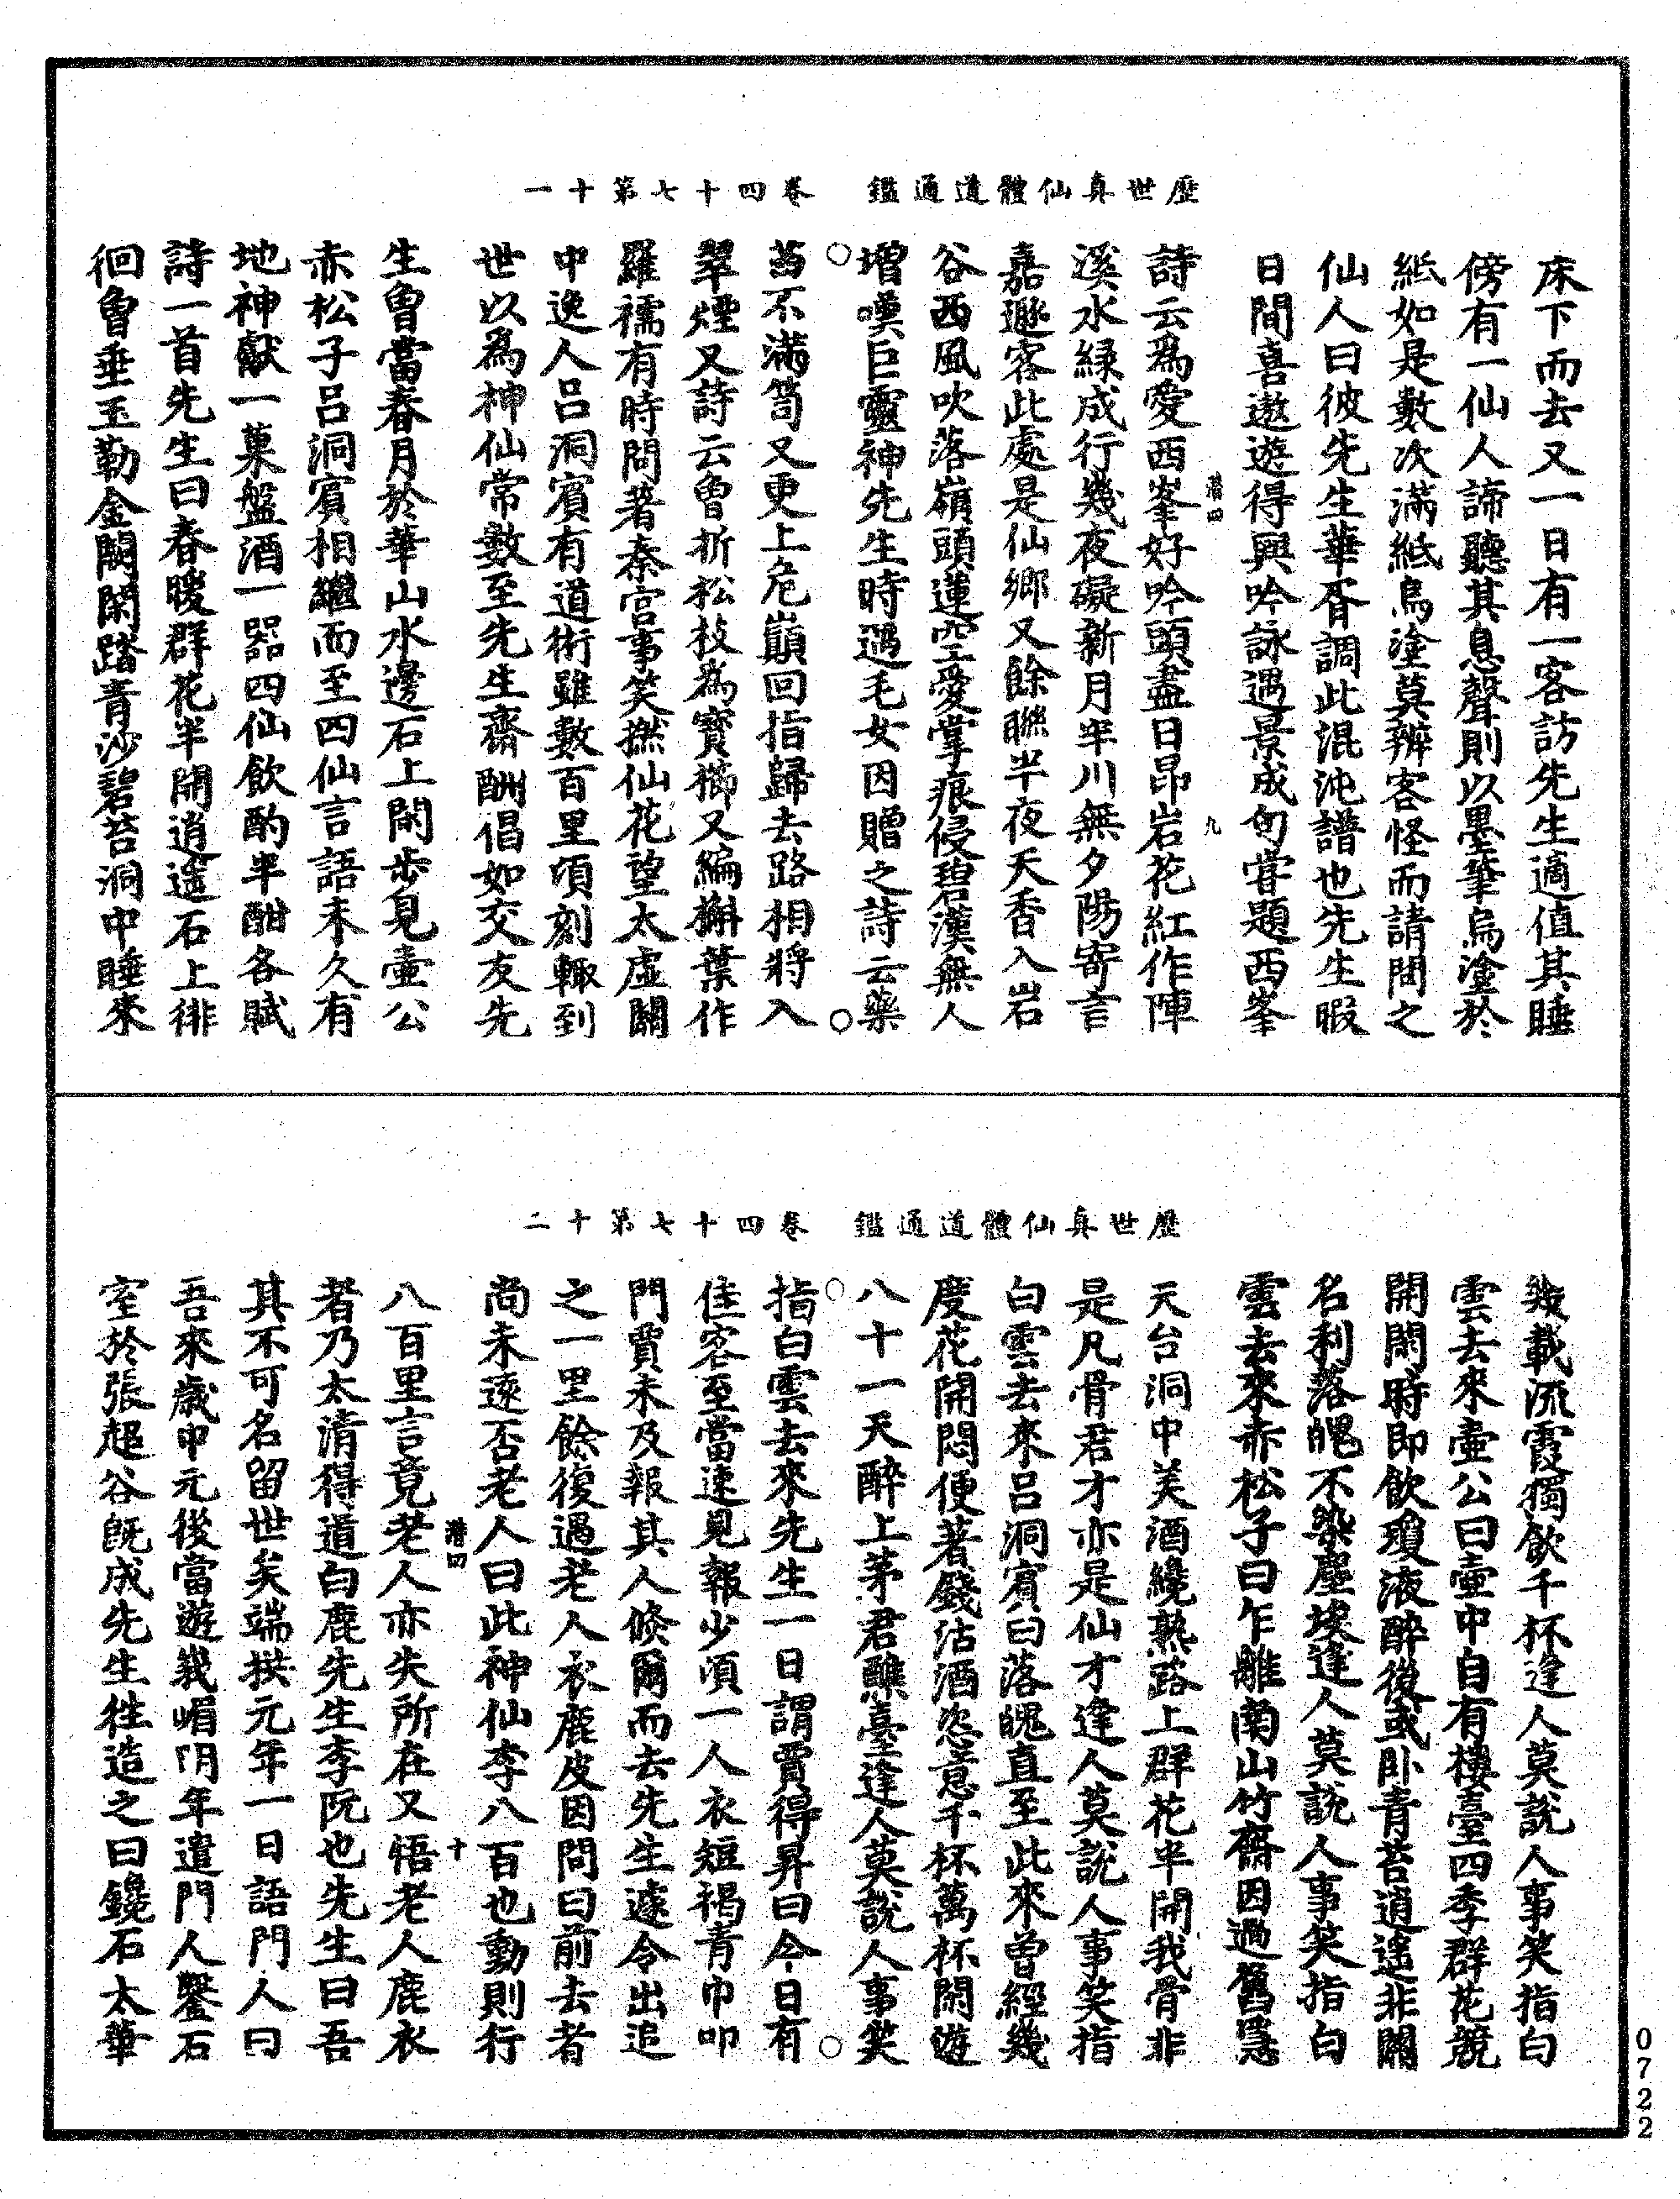 歷世真仙體道通鑑　卷四十七第十一
床下而去又一日有一客訪先生適值其睡
傍有一仙人諦聽其息聲則以墨筆烏塗於
紙如是數次滿紙烏塗莫辨客怪而請問之
仙人曰彼先生華胥調此混沌譜也先生暇
日間喜遨遊得興吟詠遇景成句嘗題西峯
詩云為愛西峯好吟頭盡日昂岩花紅作陣
溪水綠成行幾夜礙新月半川無夕陽寄言
嘉遯客此處是仙鄉又餘聯半夜天香入岩
谷西風吹落嶺頭蓮空愛掌痕侵碧漢無人
增嘆巨靈神先生時遇毛女因贈之詩云藥
苗不滿笥又更上危巔回指歸去路相將入
翠煙又詩云曾折松枝為寶櫛又編槲葉作
羅襦有時問著秦宮事笑撚仙花望太虛關
中逸人呂洞賓有道術雖數百里頃刻輙到
世以為神仙常數至先生齋酬倡如交友先
生曾當春月於華山水邊石上閑步見壺公
赤松子呂洞賓相繼而至四仙言語未久有
地神獻一菓盤酒一器四仙飲酌半酣各賦
詩一首先生曰春暖群花半開逍遙石上徘
徊曾垂玉勒金闕閑踏青沙碧苔洞中睡來
潛四
九
歷世真仙體道通鑑　卷四十七第十二
幾載流霞獨飲千杯逢人莫說人事笑指白
雲去來壺公曰壺中自有樓臺四季群花競
開閑時即飲瓊液醉後或卧青苔逍遙非關
名利落魄不染塵埃逢人莫說人事笑指白
雲去來赤松子曰乍離南山竹齋因過舊隱
天台洞中美酒纔熟路上群花半開我骨非
是凡骨君才亦是仙才逢人莫說人事笑指
白雲去來呂洞賓曰落魄直至此來曾經幾
度花開悶便著錢沽酒恣意千杯萬杯閑遊
八十一天醉上茅君醮臺逢人莫說人事笑
指白雲去來先生一日謂賈得昇曰今日有
佳客至當速見報少頃一人衣短褐青巾叩
門賈未及報其人倐爾而去先生遽令出追
之一里餘復遇老人衣鹿皮因問曰前去者
尚未遠否老人曰此神仙李八百也動則行
八百里言竟老人亦失所在又悟老人鹿衣
者乃太清得道白鹿先生李阮也先生曰吾
其不可名留世矣端拱元年一日語門人曰
吾來歲中元後當遊峩嵋明年遣門人鑿石
室於張超谷既成先生往造之曰鑱石太華
潛四
十
0722